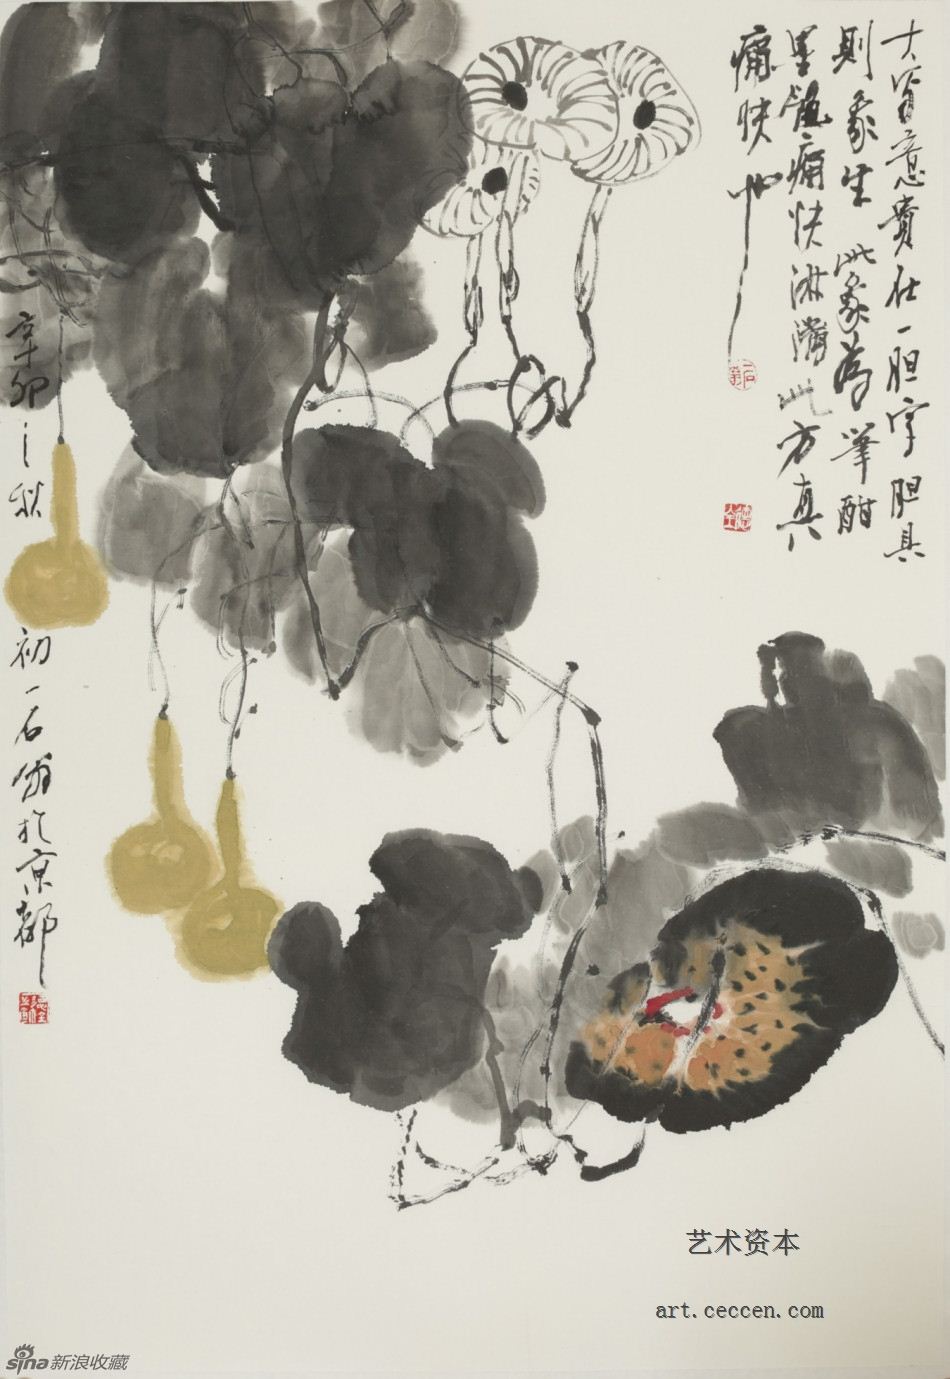 大写意贵在一胆字胆具
则象生此象为笔酣
墨饱痛快淋漓此方真
痛快也
辛卯之秋
初一石翁於京都
艺术资本
art.ceccen.com
sina新浪收藏